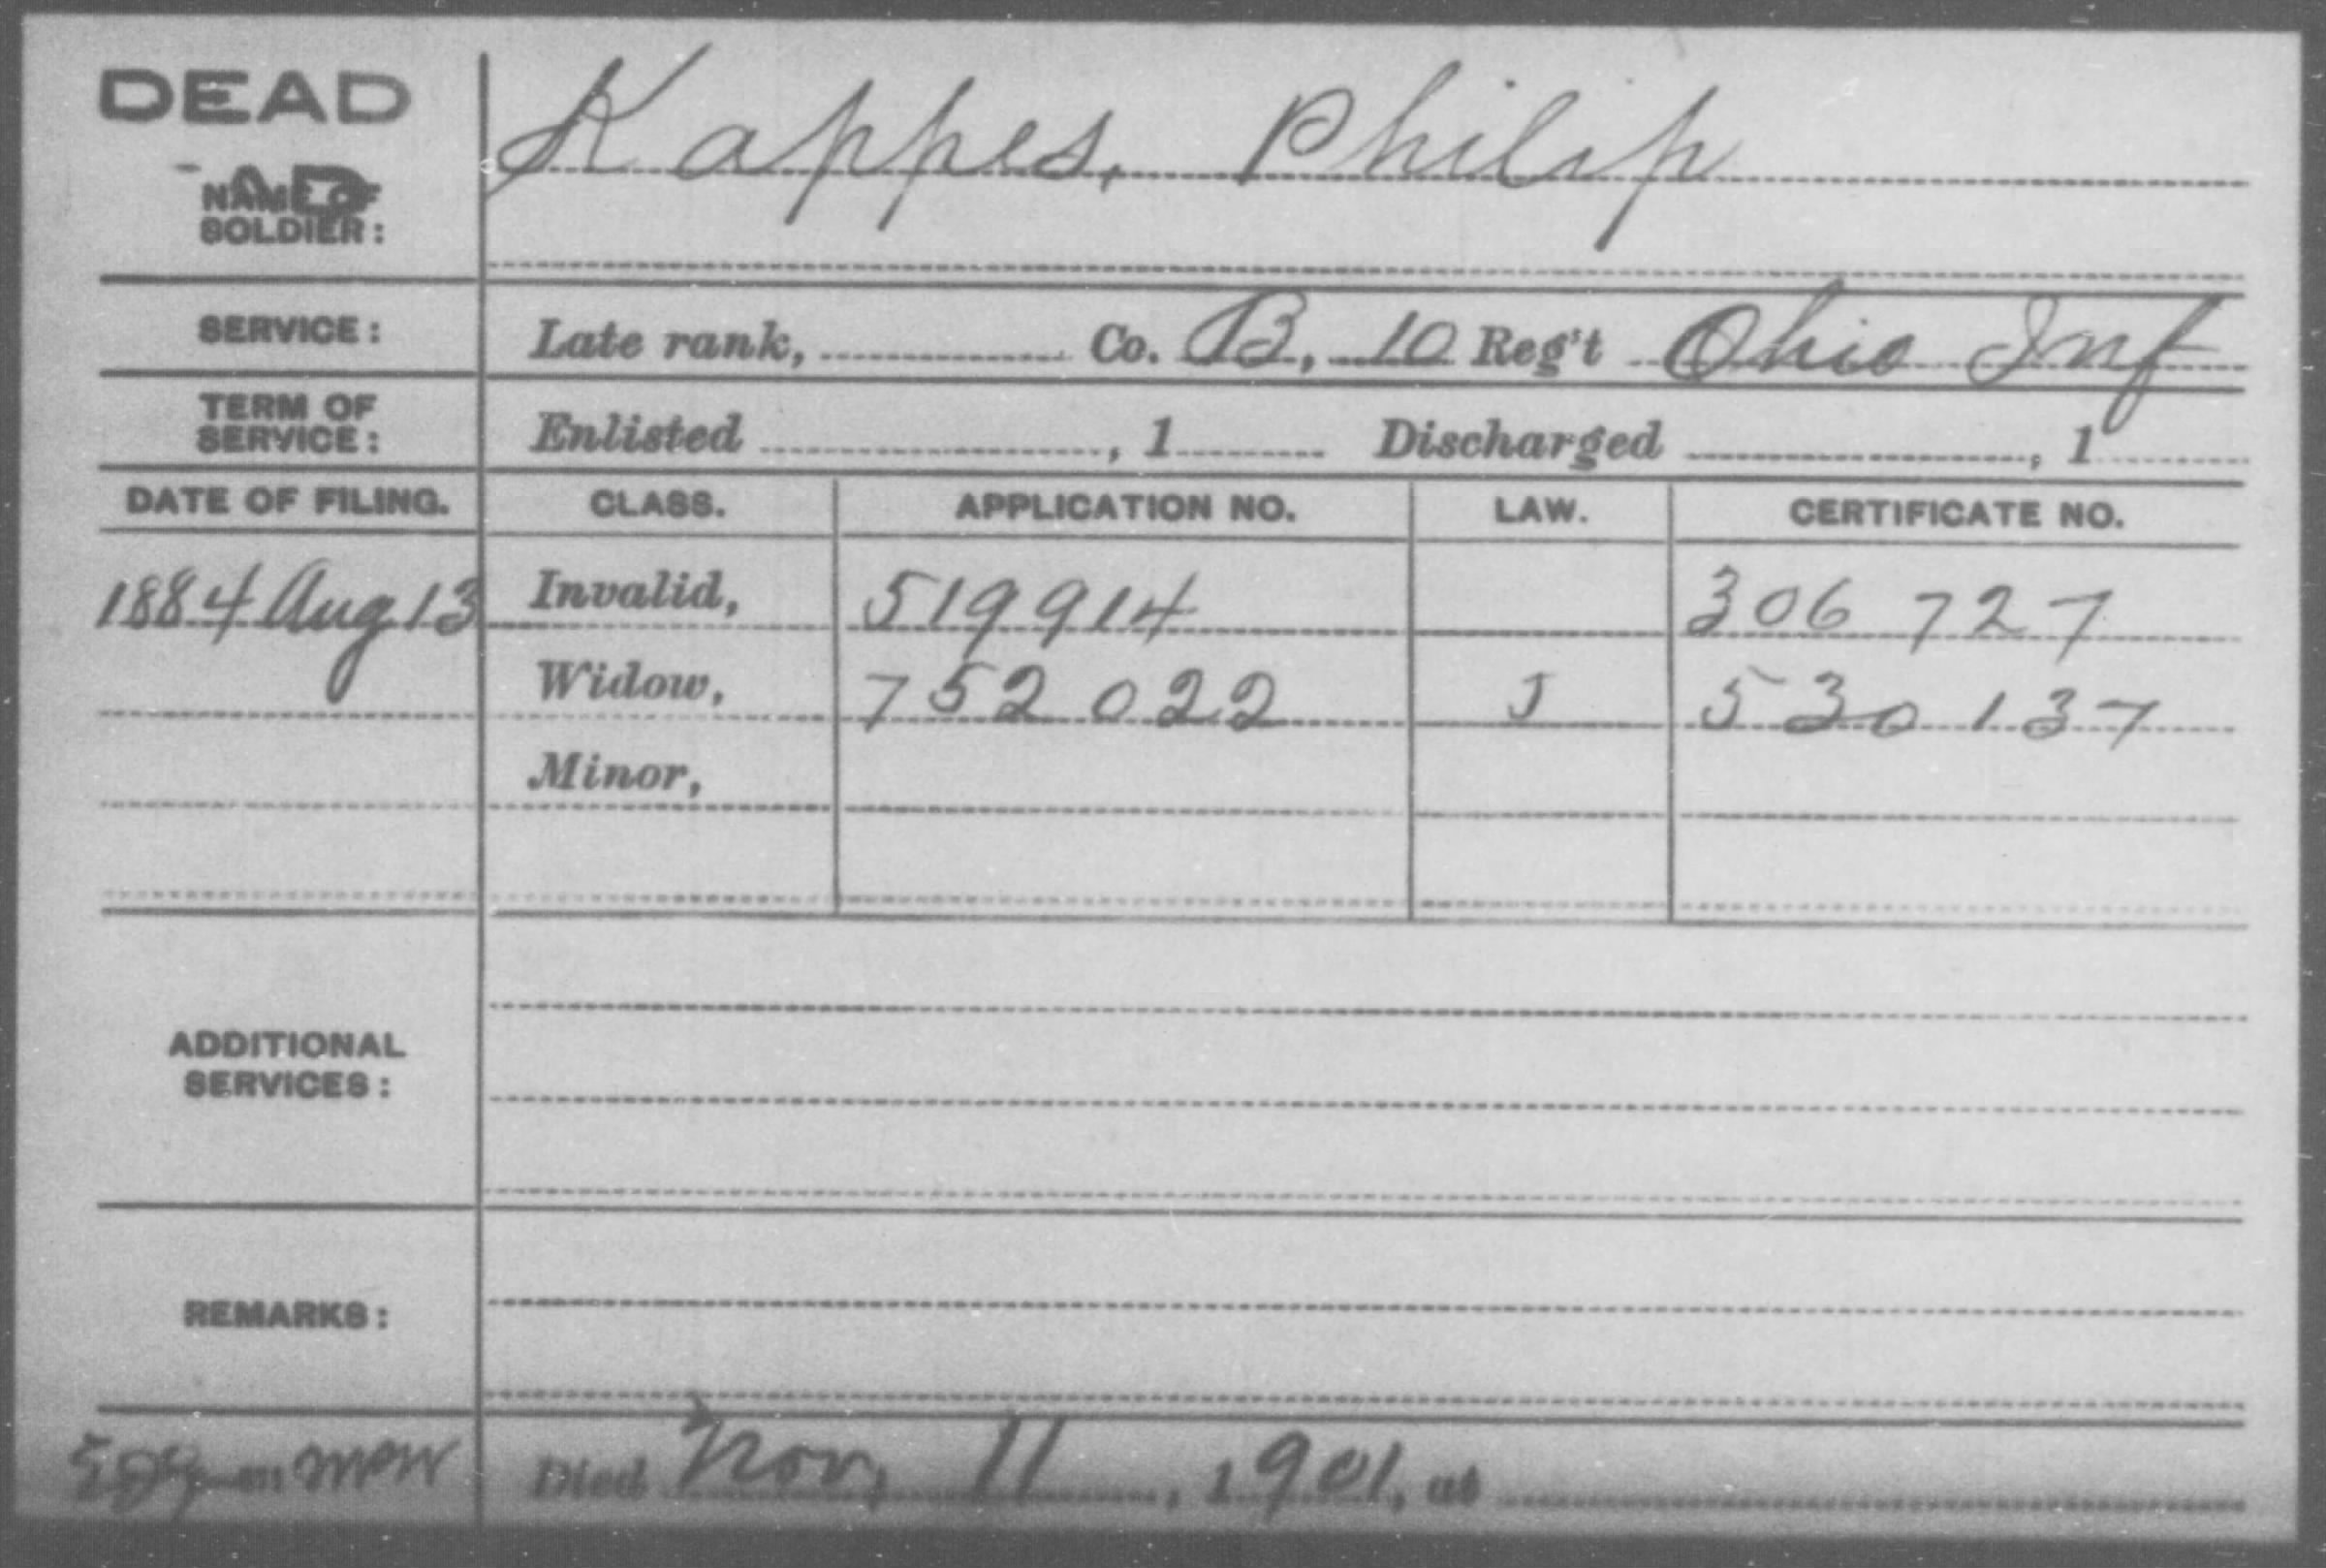 DEAD
Kappes, Philip
NAME OF
SOLDIER:
SERVICE: Late rank, Co. B, 10 Reg't Ohio Inf
TERM OF
SERVICE: Enlisted , 1 Discharged , 1
DATE OF FILING. CLASS. APPLICATION NO. LAW. CERTIFICATE NO.
1884 Aug 13 Invalid, 519914 306 727
Widow, 752 022 J 530137
Minor,
ADDITIONAL
SERVICES:
REMARKS:
Died Nov, 11, 1901, at